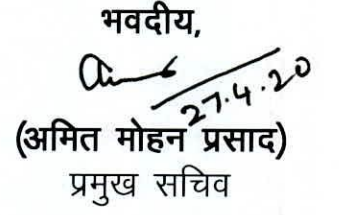 भवदीय,
27.4.20
(अमित मोहन प्रसाद)
प्रमुख सचिव